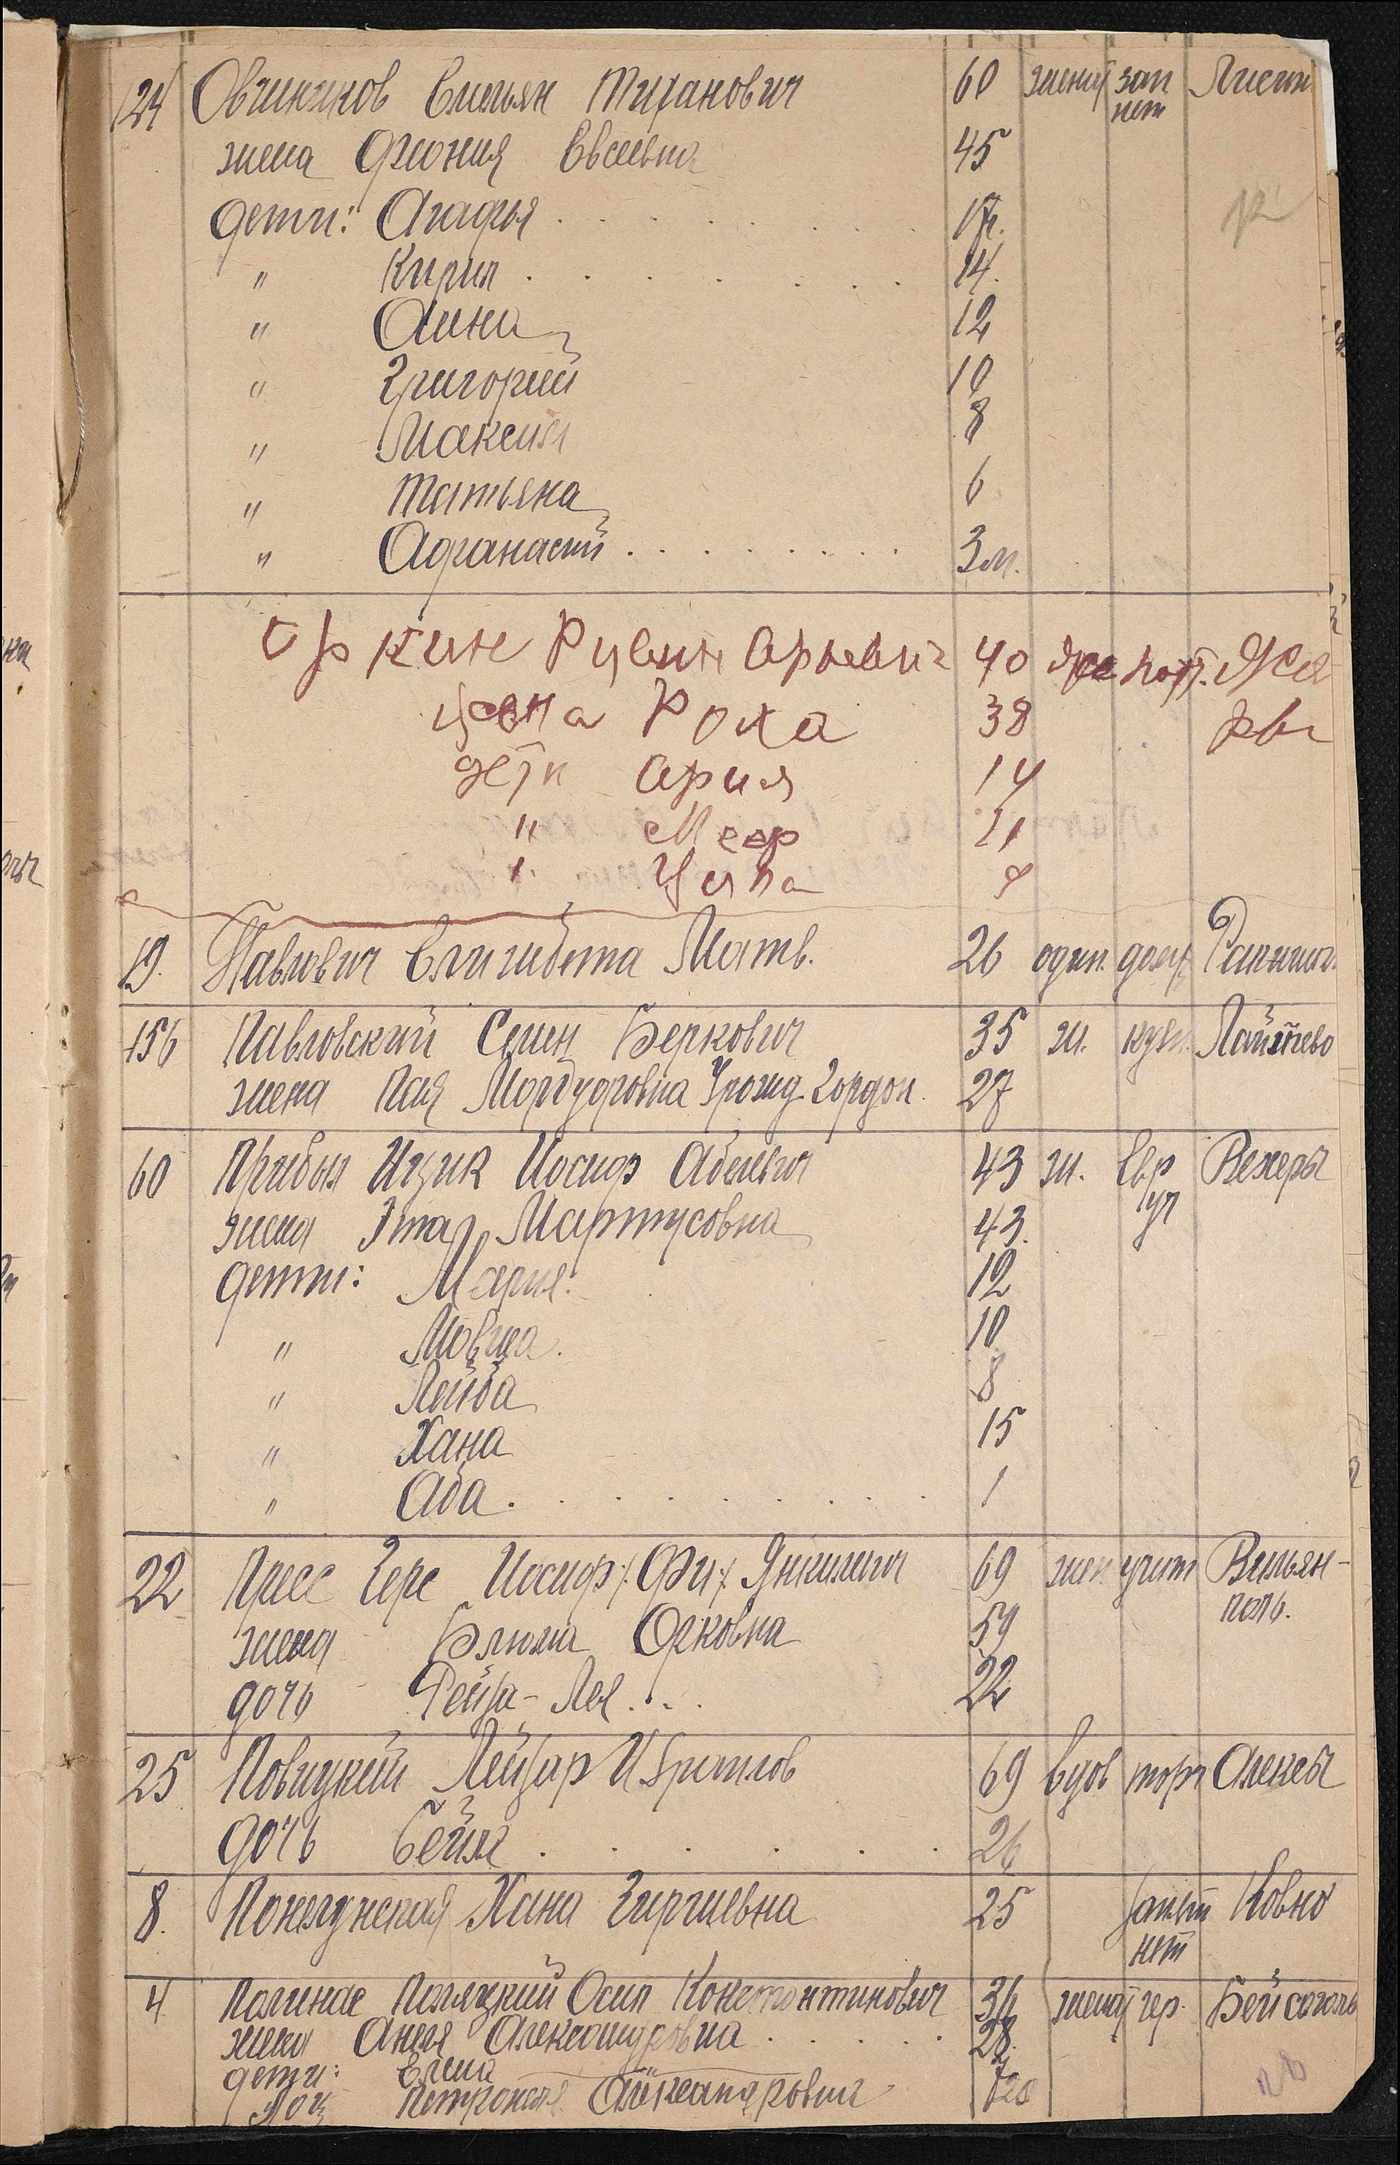 24 Овчиников Емельян Тиханович 60 женат зан нет
жена Фиония Евсеевна 45
дети: Агафья . . . . . . 17
" Кирил . . . . . . 14.
" Анна 12
" Григорий 10
" Максим 8
" Татьяна 6
" Афанасий . . . . . . . . . 3 м.
Рувин Орьевич 40 Жа
жена Роха 38 гры
дети Ория 14
" Меер 11
" Ципа 9
19. Павлович Елизабета Матв. 26 один.
156 Павловский Семен Беркович 35 ж. Лайжево
жена Пая Мордуховна Урожд. Гордон. 27
60 Прибыл Ицик Иосиф Абелевич 43 ж. Евр уч Вежеры
жена Эта Мартусовна 43.
дети: Мария. 12
" Мовша. 10
" Лейба 8
" Хана 15
" Аба . . . . . . . . . 1
22 Пресс Герс Иосиф Янкилевич 69 жен учит Вильян-
поль.
жена Блюма Орковна 59
дочь Рейза-Лея . . . 22
25 Новицкий Лейзар Израилов 69 вдов торг Алексы
дочь Бейля . . . . . . 26
8. Хана Гиршевна 25 занят нет Ковно
4 Полинас Поляцкий Осип Константинович 36 женат Бейсоголь
жена Анеля Александровна . . . . . . 28.
дети: Елена 7
Петронеля Александровна